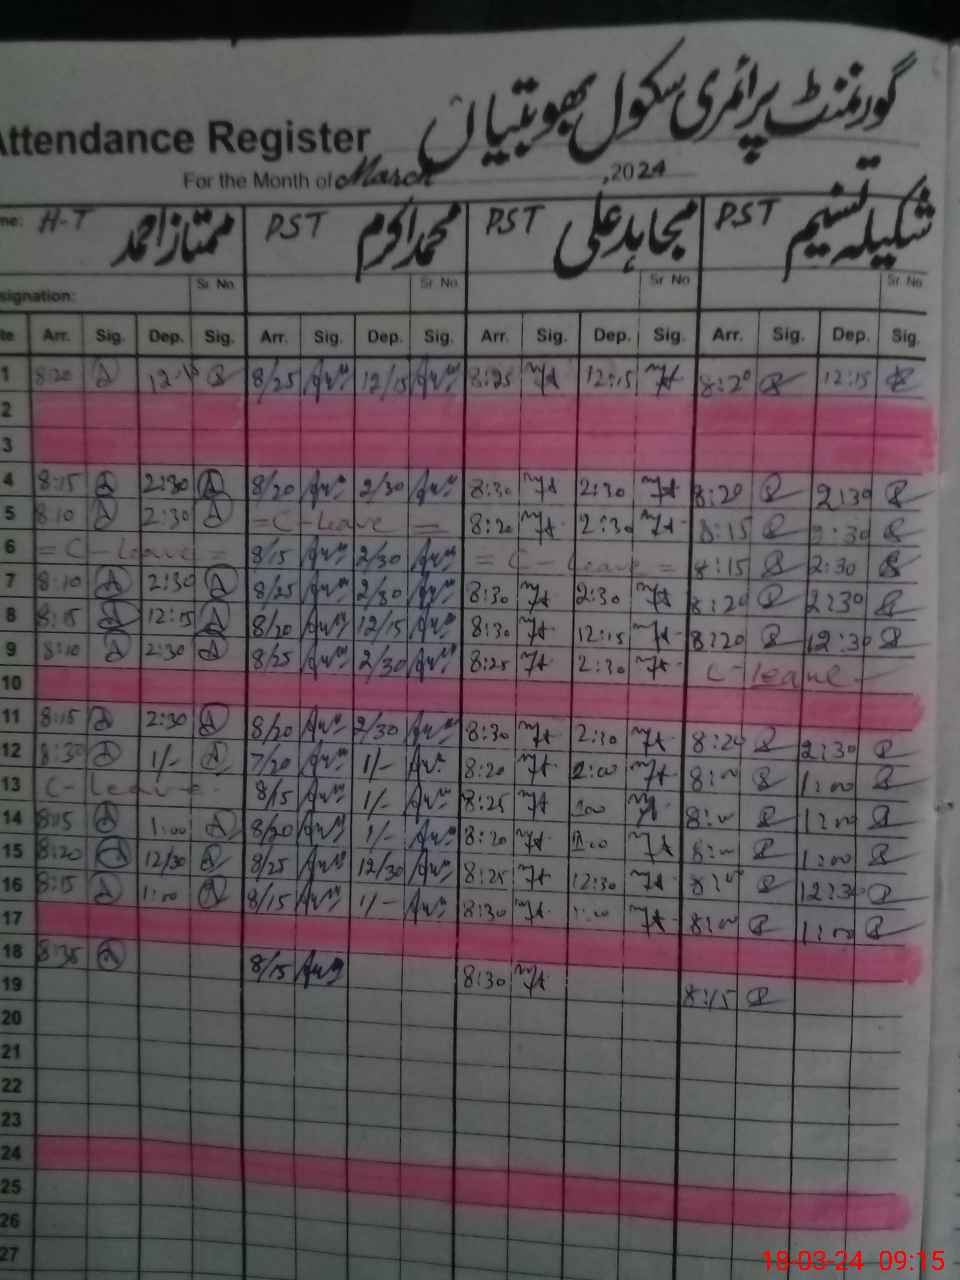 گورنمنٹ پرائمری سکول بھوبتیاں
Attendance Register
For the Month of March, 2024
me: H-T ممتاز احمد PST محمد اکرم PST مجاہد علی PST شکیلہ تسنیم
signation: Sr. No. Sr. No. Sr. No. Sr. No.
te Arr. Sig. Dep. Sig. Arr. Sig. Dep. Sig. Arr. Sig. Dep. Sig. Arr. Sig. Dep. Sig.
1 8:20 8/25 12/15 8:25 12:15 8:20 12:15
2
3
4 8:15 2:30 8/20 2/30 8:30 2:30 8:20 2:30
5 8:10 2:30 = C-Leave = 8:20 2:30 8:15 2:30
6 = C-Leave = 8/15 2/30 = C-Leave = 8:15 2:30
7 8:10 2:30 8/25 2/30 8:30 2:30 8:20 2:30
8 8:15 12:15 8/20 12/15 8:30 12:15 8:20 12:30
9 8:10 2:30 8/25 2/30 8:25 2:30 C-Leave
10
11 8:15 2:30 8/20 2/30 8:30 2:30 8:20 2:30
12 8:30 1/- 7/20 1/- 8:20 2:00 8:00 1:00
13 C-Leave 8/15 1/- 8:25 8:00 1:00
14 8:15 1:00 8/20 1/- 8:20 8:00 1:00
15 8:20 12/30 8/25 12/30 8:25 12:30 8:00 12:30
16 8:15 1:00 8/15 1/- 8:30 1:00 8:00 1:00
17
18 8:35 8/15 8:30 8:15
19
20
21
22
23
24
25
26
27
18-03-24 09:15